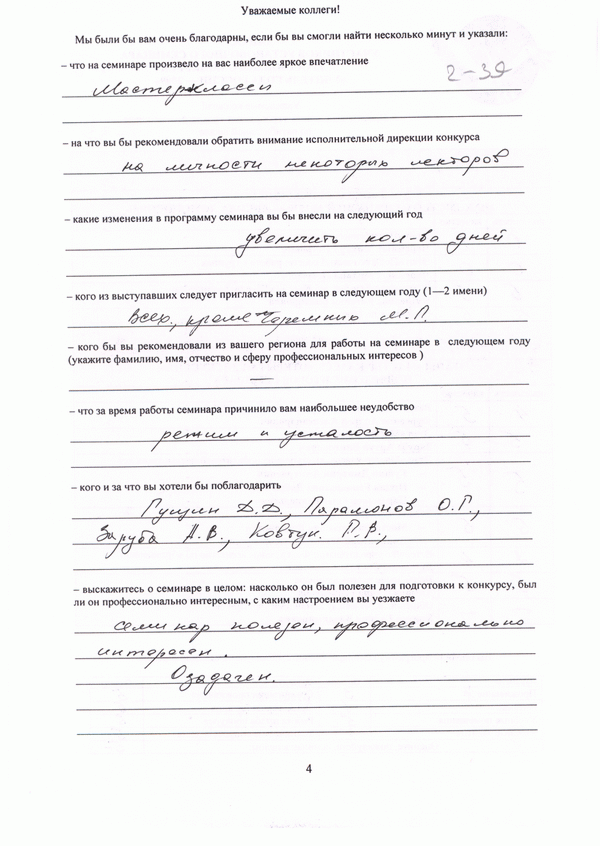 Уважаемые коллеги!
Мы были бы вам очень благодарны, если бы вы смогли найти несколько минут и указали:
– что на семинаре произвело на вас наиболее яркое впечатление
2-39
Мастерклассы
– на что вы бы рекомендовали обратить внимание исполнительной дирекции конкурса
на личности некоторых лекторов
– какие изменения в программу семинара вы бы внесли на следующий год
увеличить кол-во дней
– кого из выступавших следует пригласить на семинар в следующем году (1—2 имени)
Всех, кроме Черемних М.Г.
– кого бы вы рекомендовали из вашего региона для работы на семинаре в следующем году
(укажите фамилию, имя, отчество и сферу профессиональных интересов )
—
– что за время работы семинара причинило вам наибольшее неудобство
режим и усталость
– кого и за что вы хотели бы поблагодарить
Гущин Д.Д., Парамонов О.Г.,
Заруба А.В., Ковтун. Г.В.,
– выскажитесь о семинаре в целом: насколько он был полезен для подготовки к конкурсу, был
ли он профессионально интересным, с каким настроением вы уезжаете
Семинар полезен, профессионально
интересен.
Озадачен.
4